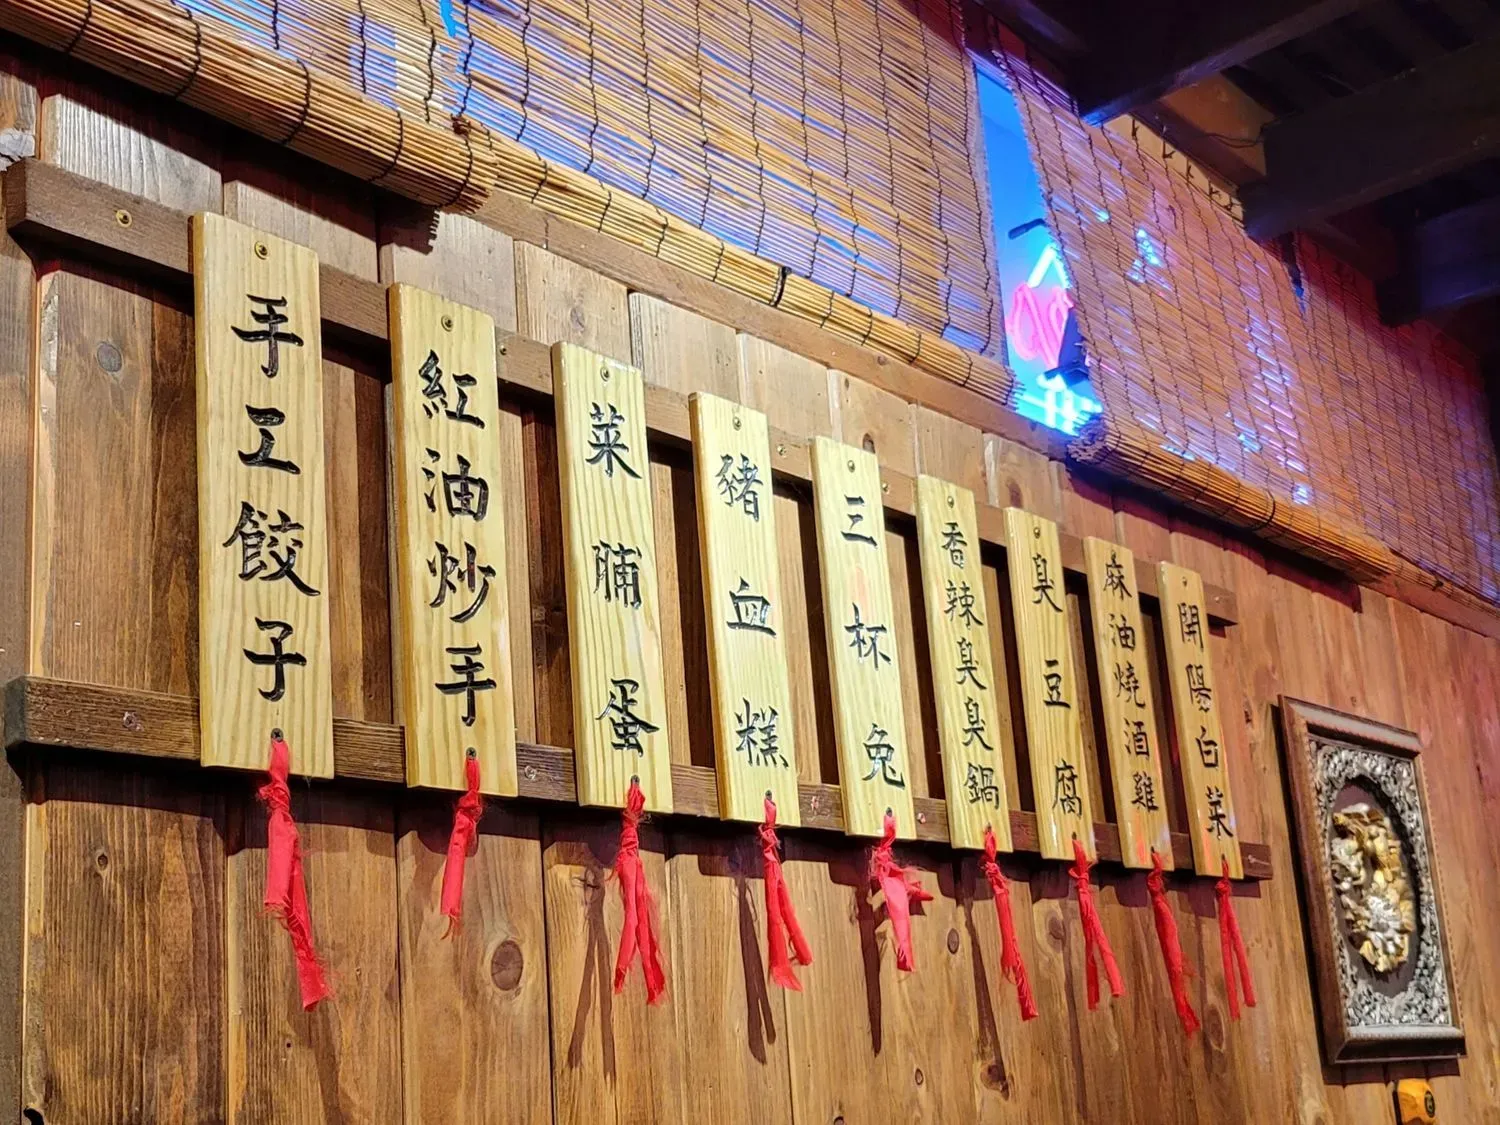 手工餃子
紅油炒手
菜脯蛋
豬血糕
三杯兔
香辣臭臭鍋
臭豆腐
麻油燒酒雞
開陽白菜